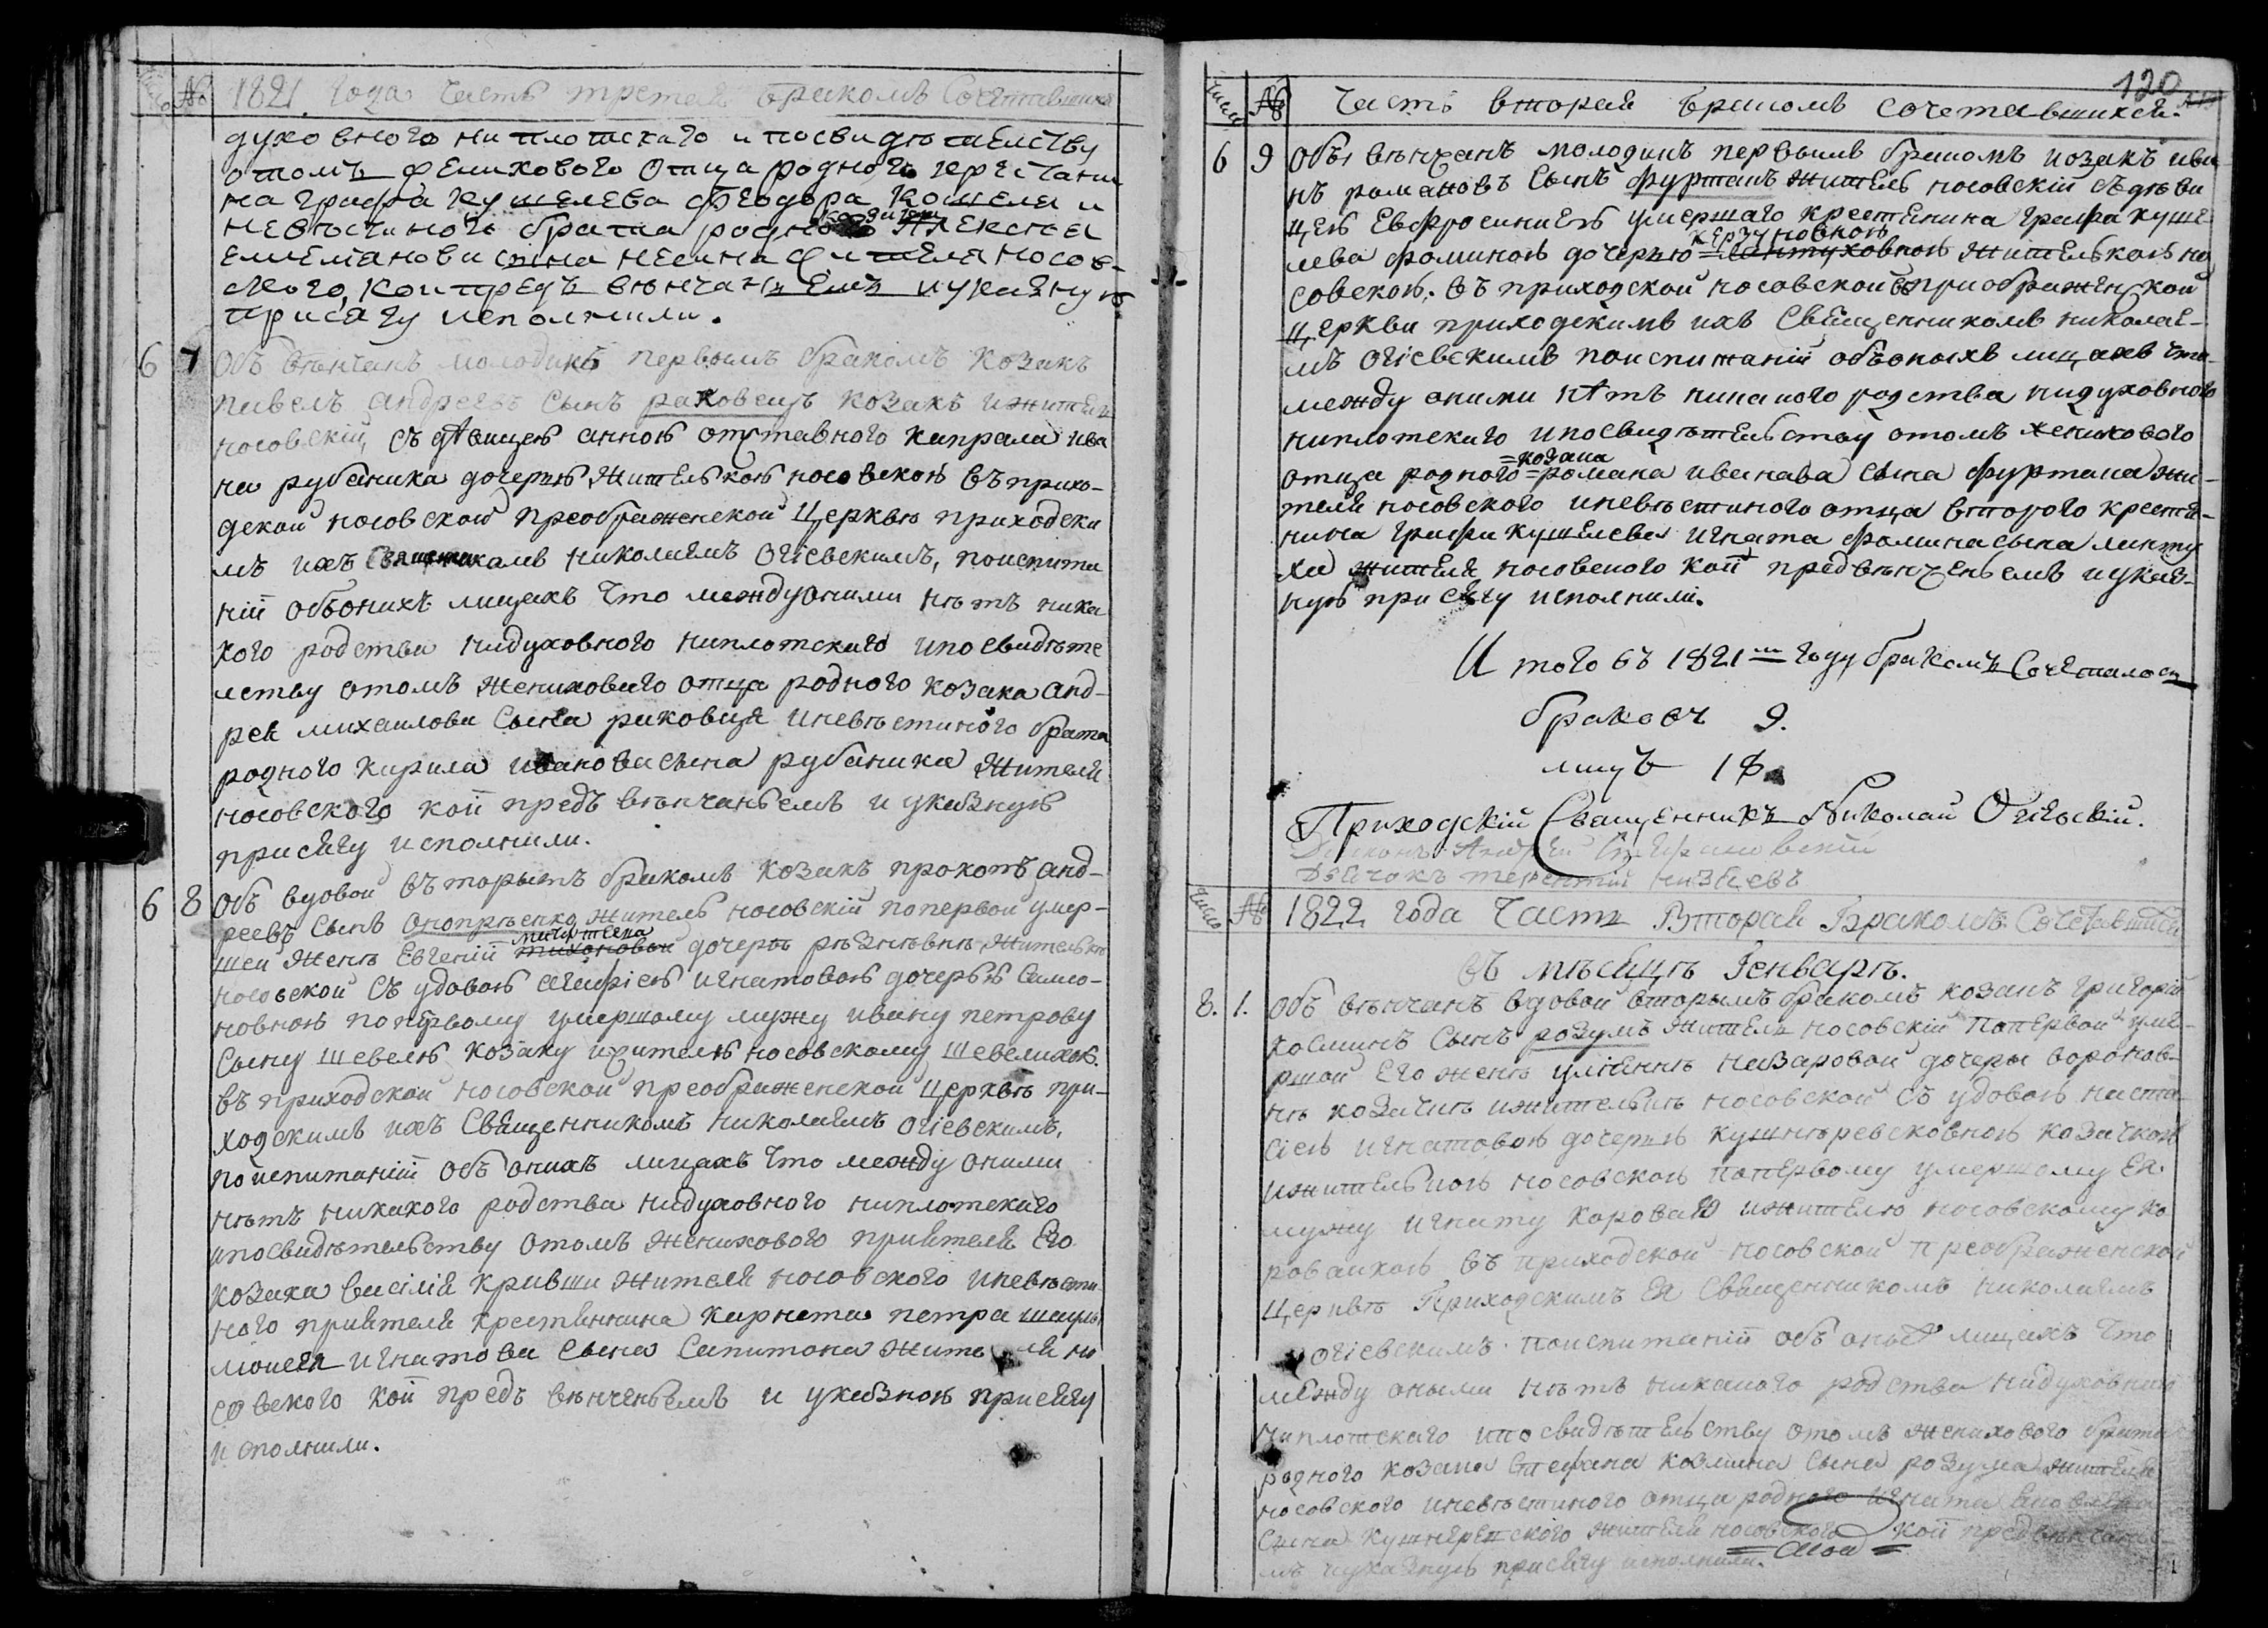 Число № 1821 года Часть третая браком Сочетавшихся
духовного ни плотскаго и посвидѣтелству
отомъ женихового Отца родного крестани
на графа кушелева Феодора Кошеля и
невѣстиного братa родного Алексея
емелianова сына жителя носов-
ского, кои предъ вѣнчаниемъ и указную
присягу исполнили.
6 7 Объ вѣнчанъ молодикъ первымъ бракомъ козакъ
павелъ андреевъ сынъ раковецъ козакъ ижитель
носовскій, съ дѣвицею анною отставного капрала ива
на рубаника дочерию жителькою носовскою въ прихо-
дской носовской преображенской Церквѣ приходски
мъ ихъ Священикомъ николаемъ Огіевскимъ, поиспита
ніи объонихъ лицахъ что междуоними нѣтъ ника
кого родства нидуховного ниплотскаго ипосвидѣте
лству отомъ женихового отца родного козака анд-
рея михаилова сына раковца иневѣстиного брата
родного кирила иванова сына рубаника жителя
носовского кои предъ вѣнчаньемъ и указную
присягу исполнили.
6 8 Объ вдовой въторымъ бракомъ козакъ прокопъ анд-
реевъ сынъ онопрѣенко житель носовскій попервой умер-
шей женѣ Евгеніи тихоновой дочерѣ жителькѣ
носовской съ удовою агафіею игнатовою дочерью само-
новною попервому умершому мужу ивану петрову
Сыну шевелю козаку ижителю носовскому шевелихою.
въ приходской носовской преображенской Церквѣ при-
ходскимъ ихъ Священникомъ николаемъ огіевскимъ,
поиспитаніи объ онихъ лицахъ что между оними
нѣтъ никакого родства нидуховного ниплотскаго
ипосвидѣтельству отомъ женихового приятеля Его
козака василія кривши жителя носовского иневѣсти
ного приятеля крестянина карнета петра
игнатова сына Сапитона жителя но
совского кои предъ вѣнченьемъ и указною присягу
исполнили.
120
Число № Часть вторая браком сочетавшихся.
6 9 Объ вѣнчанъ молодикъ первымъ бракомъ козакъ ива
нъ романовъ сынъ фуртатъ житель носовскій съ дѣви
цею Евфросиниею умершаго крестянина графа куше
лева фоминою дочерью жителькою но
совскою. въ приходской носовской преображенской
Церкви приходскимъ ихъ Священникомъ николае-
мъ огіевскимъ поиспитаніи объоныхъ лицахъ что
между оними нѣтъ никакого родства нидуховного
ниплотскаго ипосвидѣтельству отомъ женихового
=козака
отца родного=романа иванава сына фуртата жи-
теля носовского иневѣстиного отца второго крестя-
нина графа кушелева игната фомина сына ланту
ха жителя носовского кои предвѣнченьемъ иуказ-
ную присягу исполнили.
И того въ 1821м году бракомъ Сочеталось
браковъ 9.
лицъ 18.
Приходскій Священникъ Николай Огіевскій.
Дьяконъ Андрей
Дьячокъ терентій
Число № 1822 года Часть Вторая Бракомъ Сочетавшися
въ мѣсяцѣ Генварѣ.
8. 1. Объ вѣнчанъ вдовой вторымъ бракомъ козакъ григорій
косминъ сынъ розумъ житель носовскій попервой уме-
ршой его женѣ улianнѣ назаровой дочеры воронов-
нѣ козачкѣ ижителькѣ носовской съ удовою наста-
сіею игнатовою дочерью кушнѣревсковною козачкою
ижителькою носовскою попервому умершому ея.
мужу игнату короваю ижителю носовскому ко
роваихою въ приходской носовской преображенской
Церквѣ Приходскимъ ея Священникомъ николаемъ
огіевскимъ. поиспитаніи объ оныхъ лицахъ что
между оными нѣтъ никакого родства нидуховного
ниплотскаго ипосвидѣтельству отомъ женихового брата
родного козака Стефана козмина сына розума жителя
носовского иневѣстиного отца родного игната
сына кушнеревского жителя носовского кои предвѣнчание
мъ иуказную присягу исполнили.